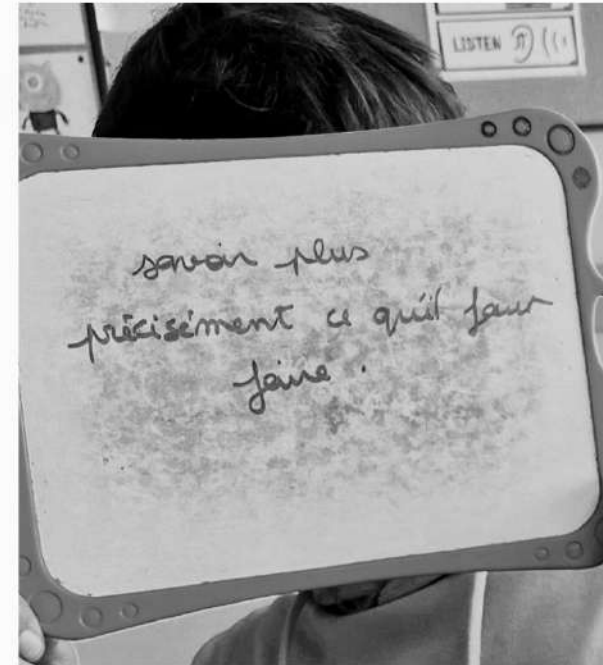 LISTEN
savoir plus
précisément ce qu'il faut
faire.